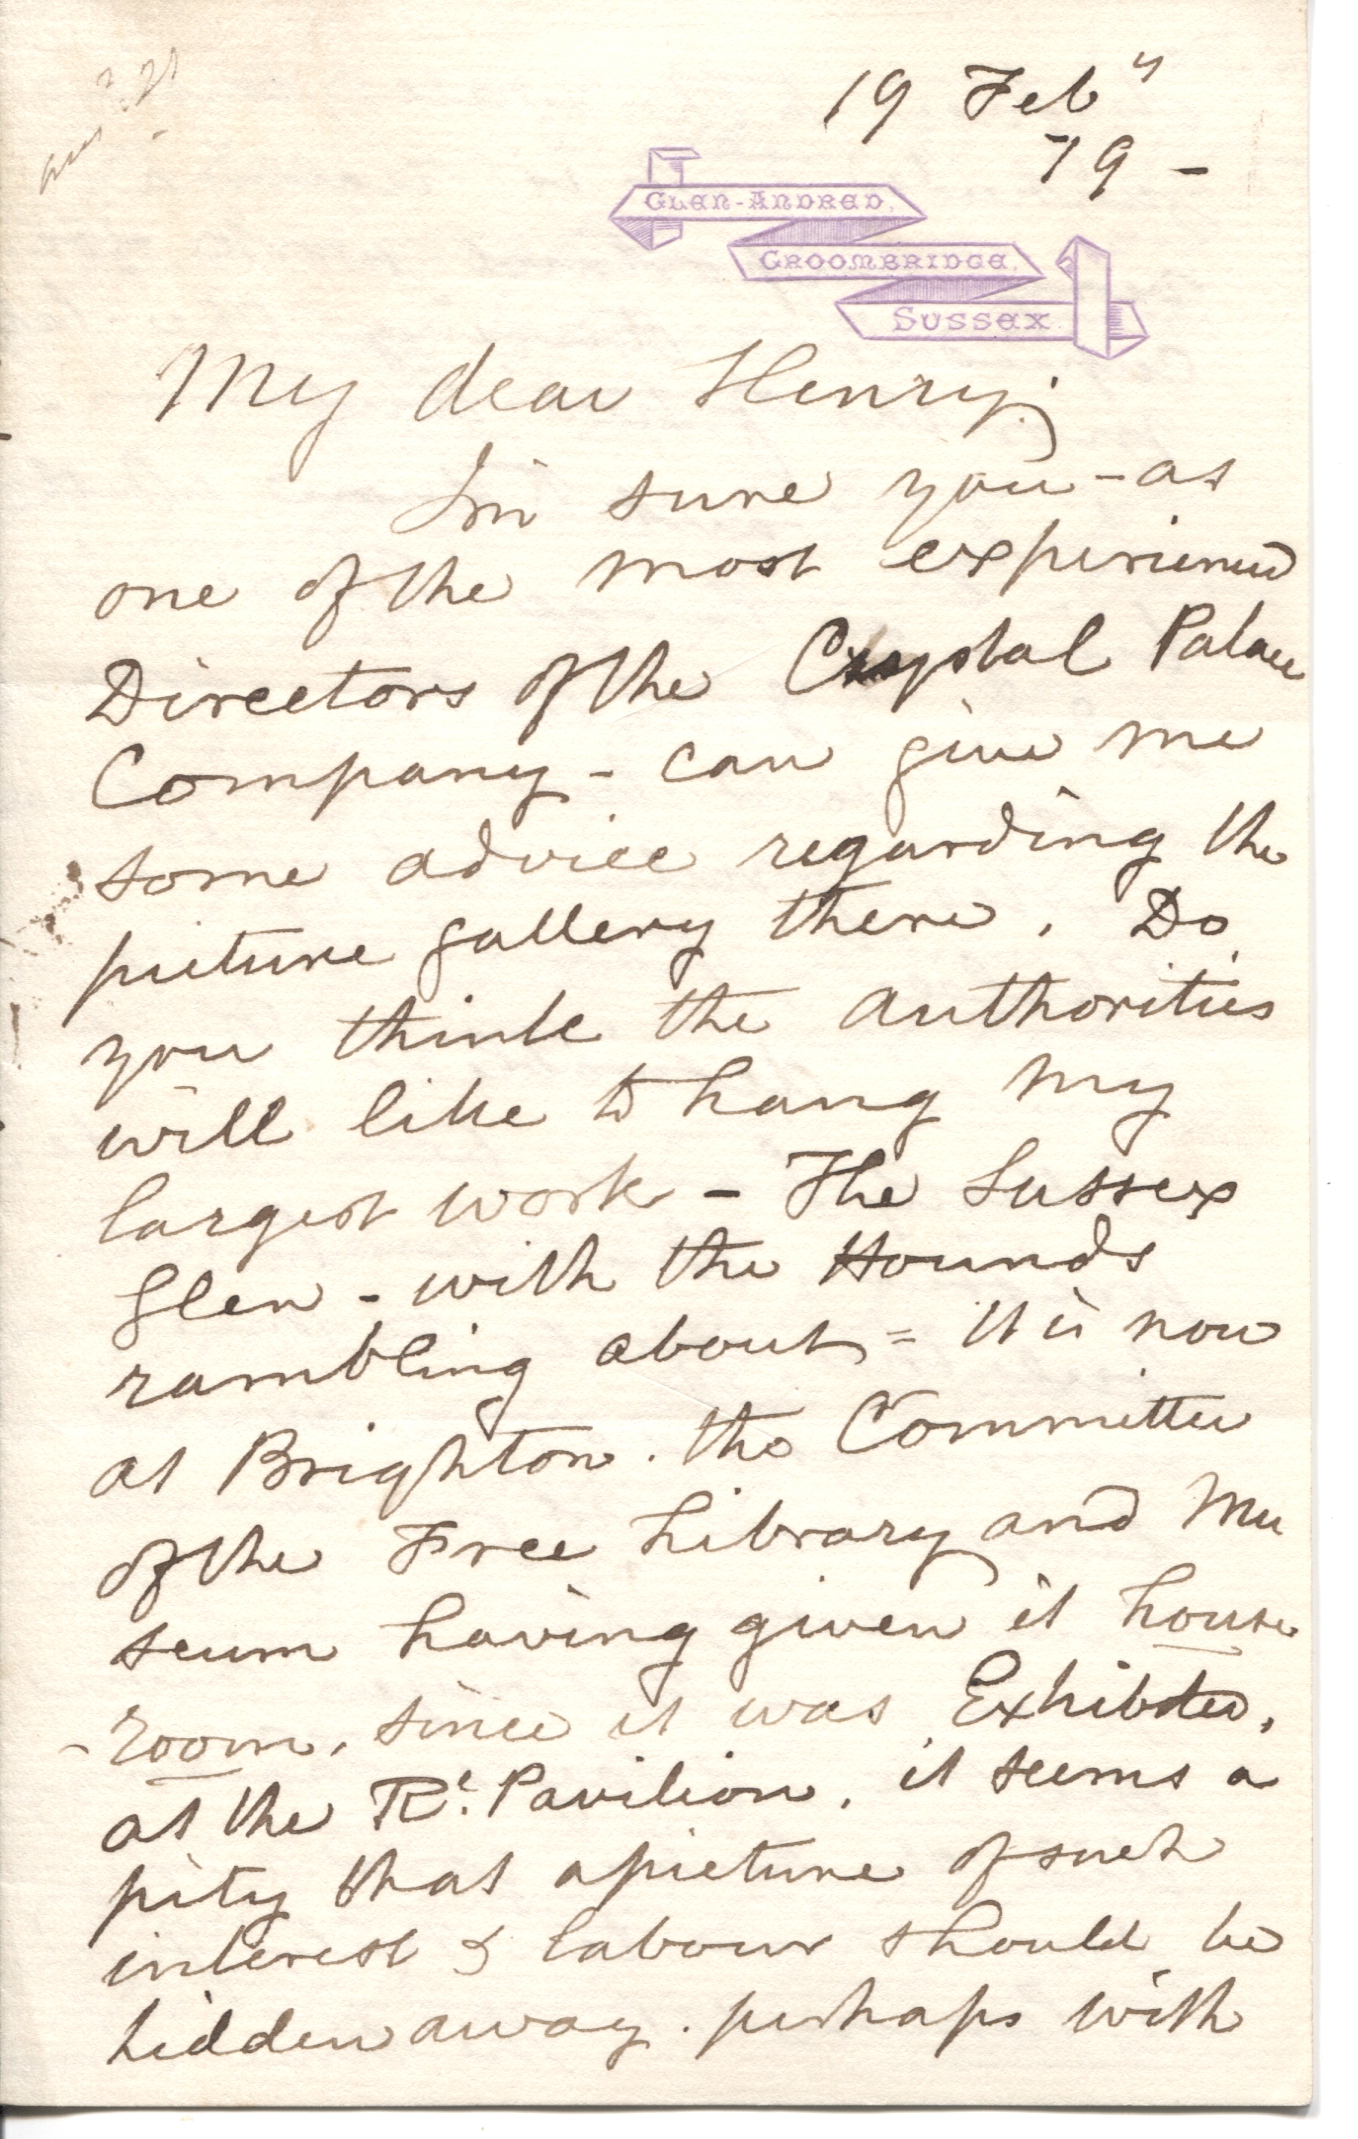 ans 21
19 Feby
79 -
Glen-Andred,
Groombridge,
Sussex.
My dear Henry;
I'm sure you - as
one of the most experienced
Directors of the Crystal Palace
Company - can give me
some advice regarding the
picture gallery there. Do
you think the authorities
will like to hang my
largest work - The Sussex
Glen - with the Hounds
rambling about = It is now
at Brighton. the Committee
of the Free Library and Mu
seum having given it house
-room, since it was Exhibited,
at the Rl. Pavilion. it seems a
pity that a picture of such
interest & labour should be
hidden away. perhaps with